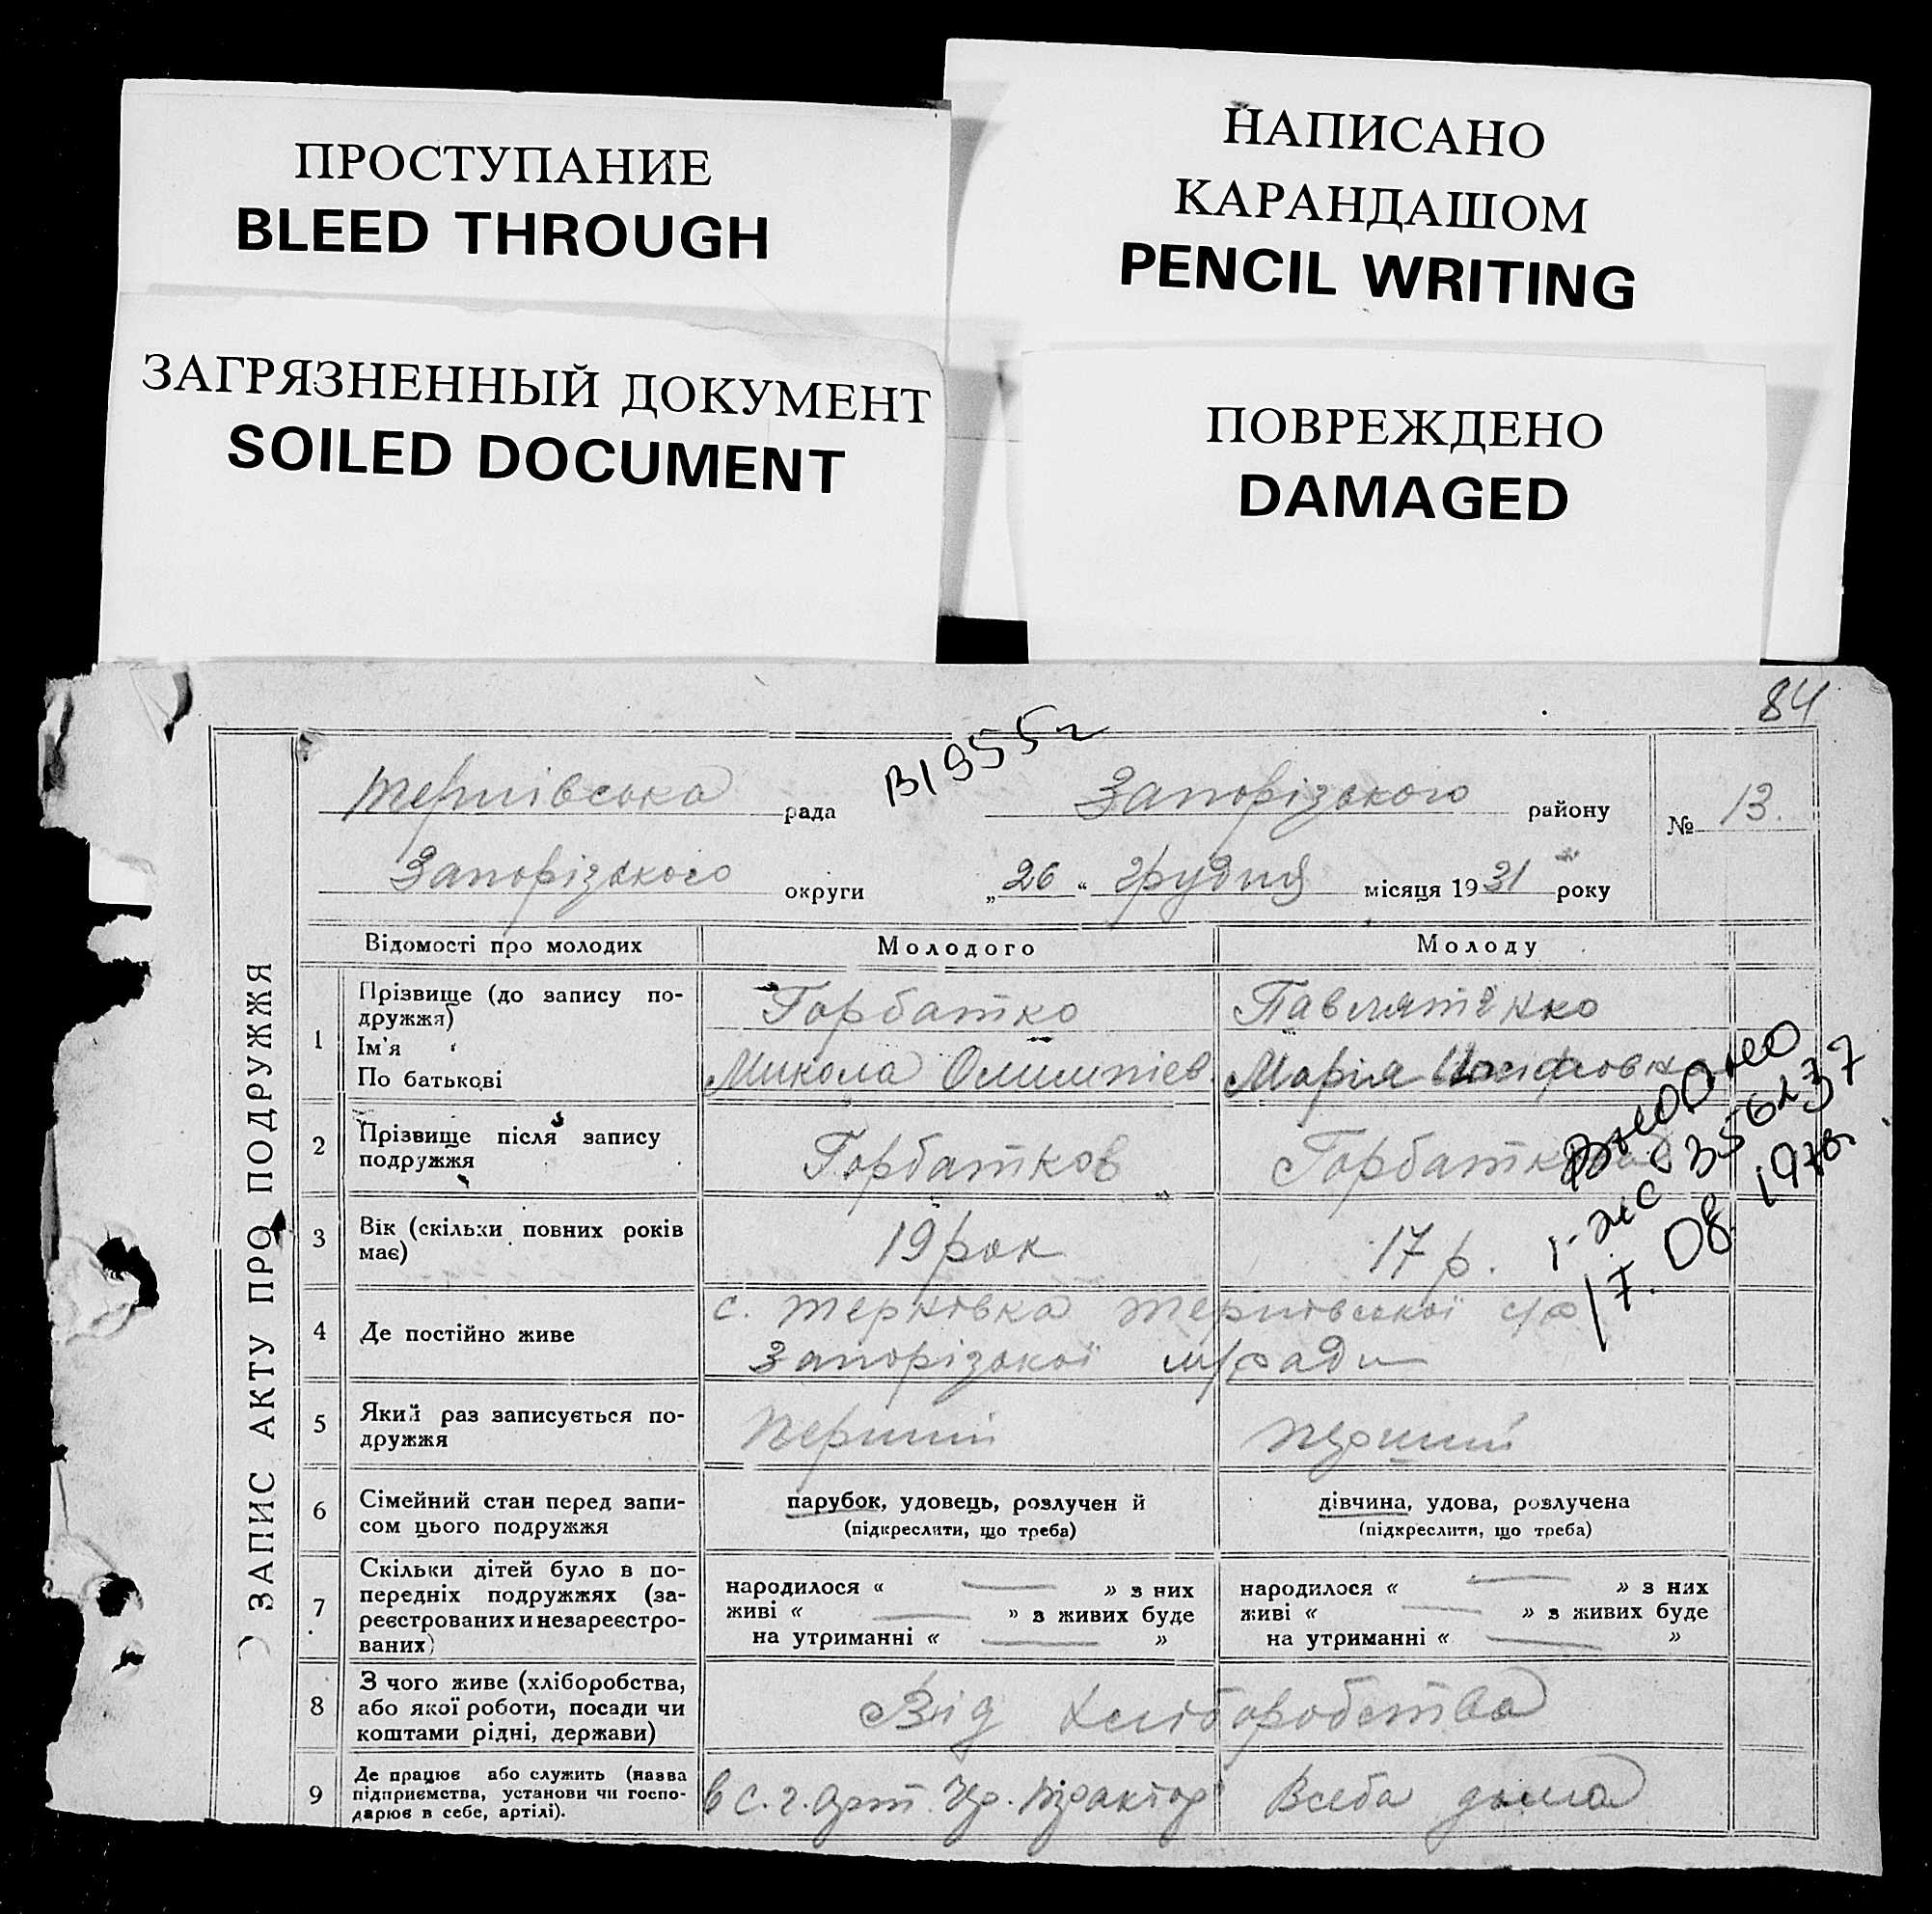 ПРОСТУПАНИЕ
BLEED THROUGH
ЗАГРЯЗНЕННЫЙ ДОКУМЕНТ
SOILED DOCUMENT
НАПИСАНО
КАРАНДАШОМ
PENCIL WRITING
ПОВРЕЖДЕНО
DAMAGED
84
ЗАПИС АКТУ ПРО ПОДРУЖЖЯ
В1955г
Тернівська рада Запорізького району № 13.
Запорізького округи „26“ грудня місяця 1931 року
Відомості про молодих Молодого Молоду
1 Прізвище (до запису по-
дружжя)
Ім'я
По батькові
Горбатко
Микола Олимпіев.
Павлятенко
Марія
2 Прізвище після запису
подружжя
Горбатков
3 Вік (скільки повних років
має)
19 рок
17 р.
4 Де постійно живе
с. Тернівка Тернівської с/р
Запорізької м/ради
5 Який раз записується по-
дружжя
Перший
перший
6 Сімейний стан перед запи-
сом цього подружжя
парубок, удовець, розлучен й
(підкреслити, що треба)
дівчина, удова, розлучена
(підкреслити, що треба)
7 Скільки дітей було в по-
передніх подружжях (за-
реєстрованих и незареєстро-
ваних)
народилося « — » з них
живі « — » з живих буде
на утриманні « — »
народилося « — » з них
живі « — » з живих буде
на утриманні « — »
8 З чого живе (хліборобства,
або якої роботи, посади чи
коштами рідні, держави)
Від хліборобства
9 Де працює або служить (назва
підприємства, установи чи госпо-
дарює в себе, артілі).
в с.г. арт. Чр. трактор
Всеба дома
356237
17.08.1970